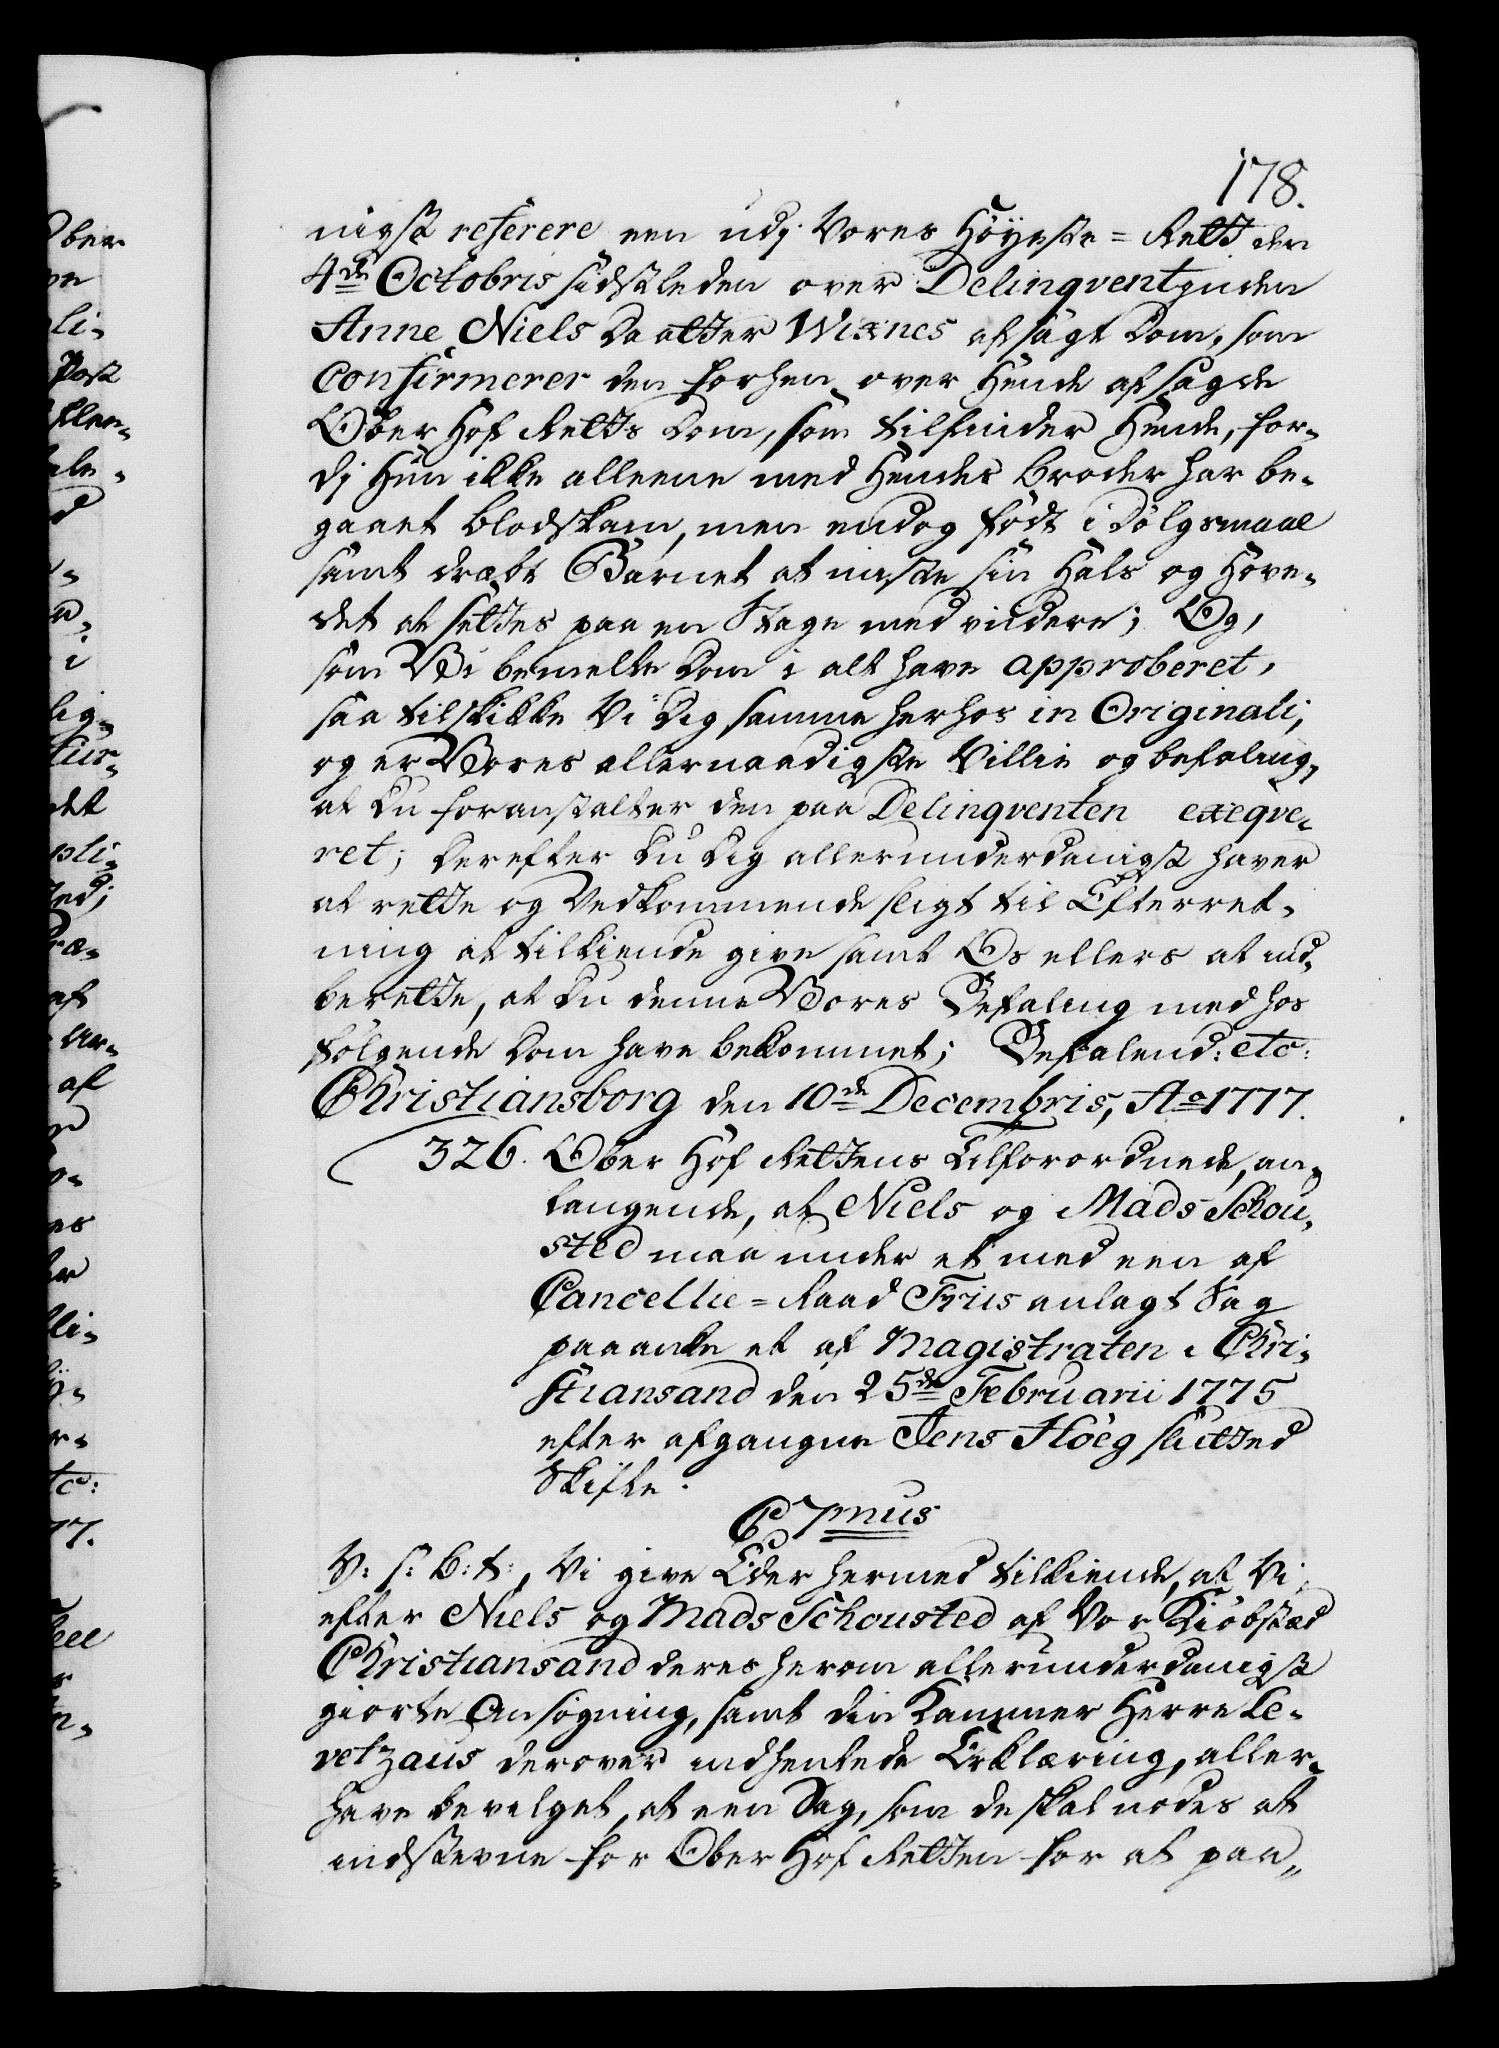 178.
nigst referere een udj Vores Höyeste=Rett den
4de Octobris sidstleden over Delinqventinden
Anne Niels Daatter Wixnes afsagt Dom, som
Confirmerer den forhen over Hende afsagde
Ober Hof Retts Dom, som tilfinder Hende, for-
dj Hun ikke alleene med Hendes Broder har be-
gaaet Blodskam, men endog födt i Dölgsmaal
samt dræbt Barnet at miste sin Hals og Hove-
det at settes paa en Stage med videre; Og,
som Vi bemelte Dom i alt have approberet,
saa tilskikke Vi Dig samme herhos in Originali,
og er Vores allernaadigste Villie og befaling,
at Du foranstalter den paa Delinqventen exeqve-
ret; Derefter Du Dig allerunderdanigst haver
at rette og Vedkommende sligt til Efterret-
ning at tilkiende give samt Os ellers at ind-
berette, at Du denne Vores Befaling med hos
fölgende Dom have bekommet; Befalend: etc:
Christiansborg den 10de Decembris, Ao 1777.
326. Ober Hof Rettens Tilforordnede, an-
langende, at Niels og Mads Schou-
sted maa under et med een af
Cancellie=Raad Friis anlagt Sag
paaanke et af Magistraten i Chri-
stiansand den 25de Februarii 1775
efter afgangne Jens Höeg slutted
Skifte.
C 7mus
V: s: b: t:, Vi give Eder hermed tilkiende, at Vi
efter Niels og Mads Schousted af Vor Kiöbstæd
Christiansand deres herom allerunderdanigst
giorte Ansögning, samt din Kammer Herre Le-
vetzaus derover indhentede Erklæring, aller-
have bevilget, at een Sag, som de skal nödes at
indstevne for Ober Hof Retten for at paa-